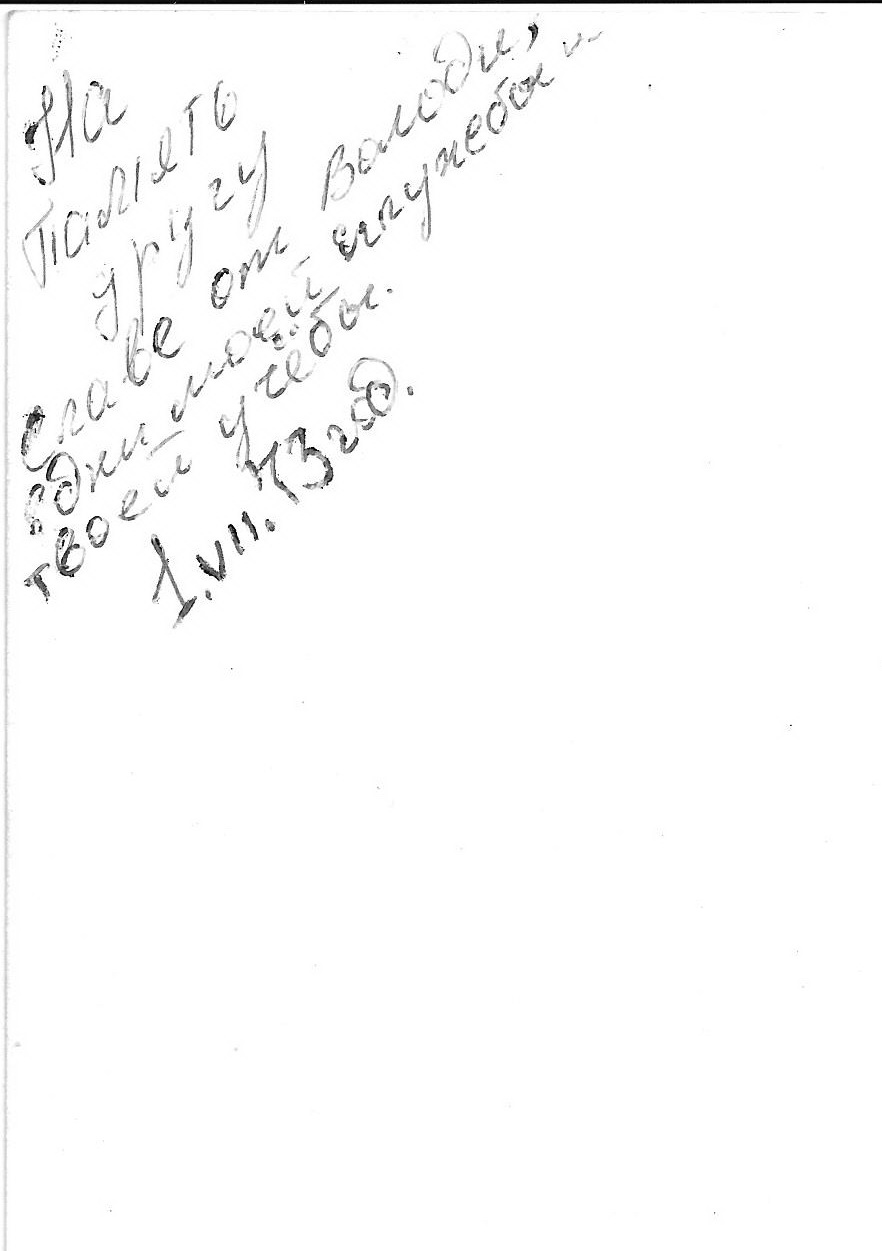 На
память
другу
Славе от Володи,
в дни моей службы и
твоей учёбы.
1.VII.73 год.